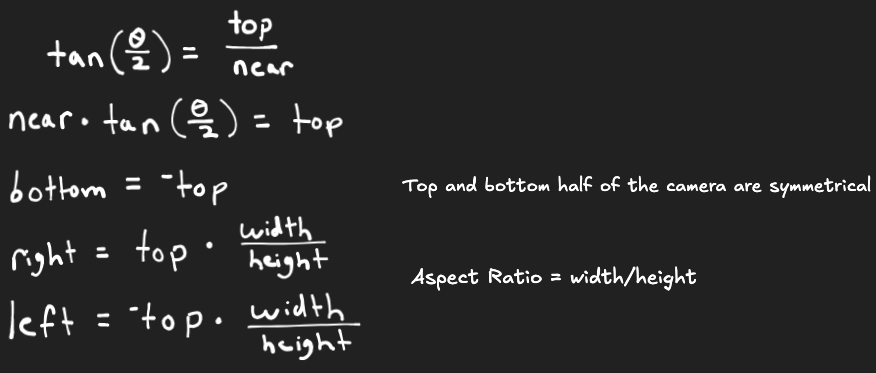 tan(θ/2) = top/near
near · tan(θ/2) = top
bottom = -top
Top and bottom half of the camera are symmetrical
right = top · width/height
Aspect Ratio = width/height
left = -top · width/height